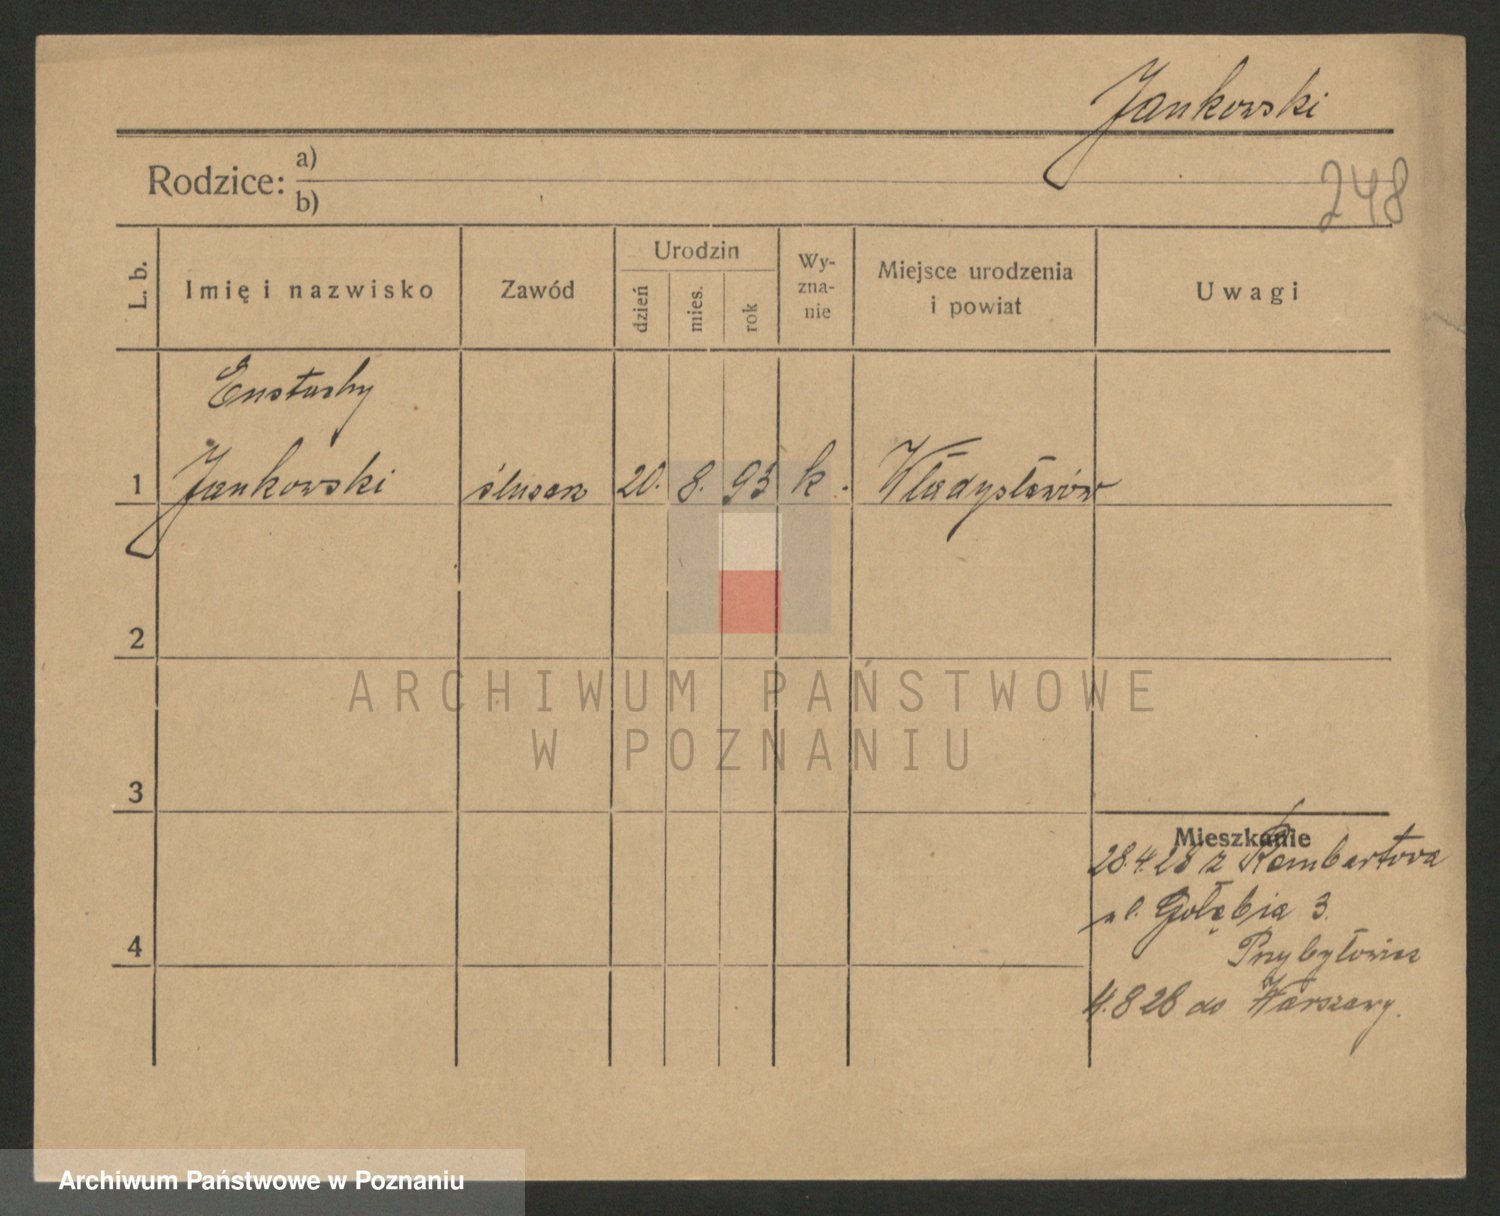 Jankowski
248
Rodzice: a)
b)
L. b.
Imię i nazwisko
Zawód
Urodzin
dzień
mies.
rok
Wy-
zna-
nie
Miejsce urodzenia
i powiat
Uwagi
Eustachy
1 Jankowski ślusarz 20. 8. 93 k. Władysławów
2
ARCHIWUM PAŃSTWOWE
W POZNANIU
3
Mieszkanie
28.4.28 z Rembertowa
ul. Gołębia 3.
4
Przybyłowicz
4.8 28 do Warszawy.
Archiwum Państwowe w Poznaniu